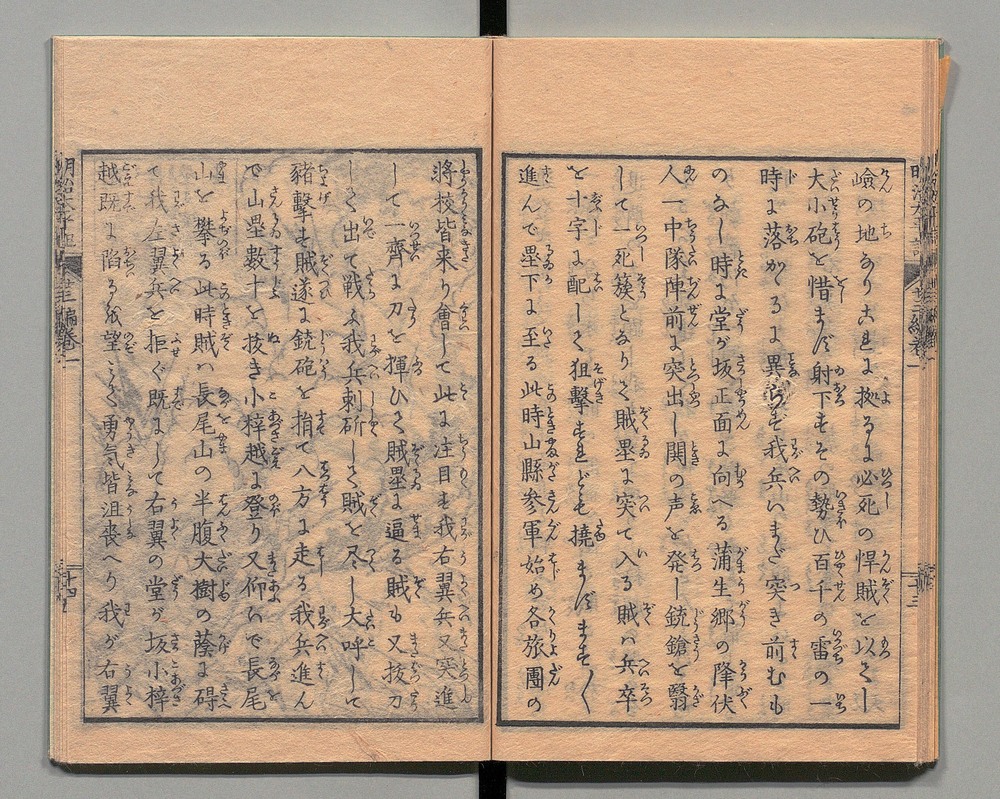 嶮の地なり之れに拠るに必死の悍賊を以てし
大小砲を惜まず射下すその勢ひ百千の雷の一
時に落かゝるに異らず我兵いまだ突き前むも
のなし時に堂が坂正面に向へる蒲生郷の降伏
人一中隊陣前に突出し関の声を発し銃鎗を翳
して一死簇となりて賊塁に突て入る賊ハ兵卒
を十字に配して狙撃すれども撓まずます〱
進んで塁下に至る此時山縣参軍始め各旅團の
将校皆来り會して此に注目す我右翼兵又突進
して一齊に刀を揮ひて賊塁に逼る賊も又抜刀
して出て戦ふ我兵刺斫して賊を尽し大呼して
豬撃す賊遂に銃砲を捐て八方に走る我兵進ん
で山塁数十を抜き小梓越に登り又仰いで長尾
山を攀る此時賊ハ長尾山の半腹大樹の蔭に碍
て我左翼兵を拒ぐ既にして右翼の堂が坂小梓
越既に陷るを望みて勇気皆沮喪へり我が右翼
明治太平記 廿三編巻一
十四
十三